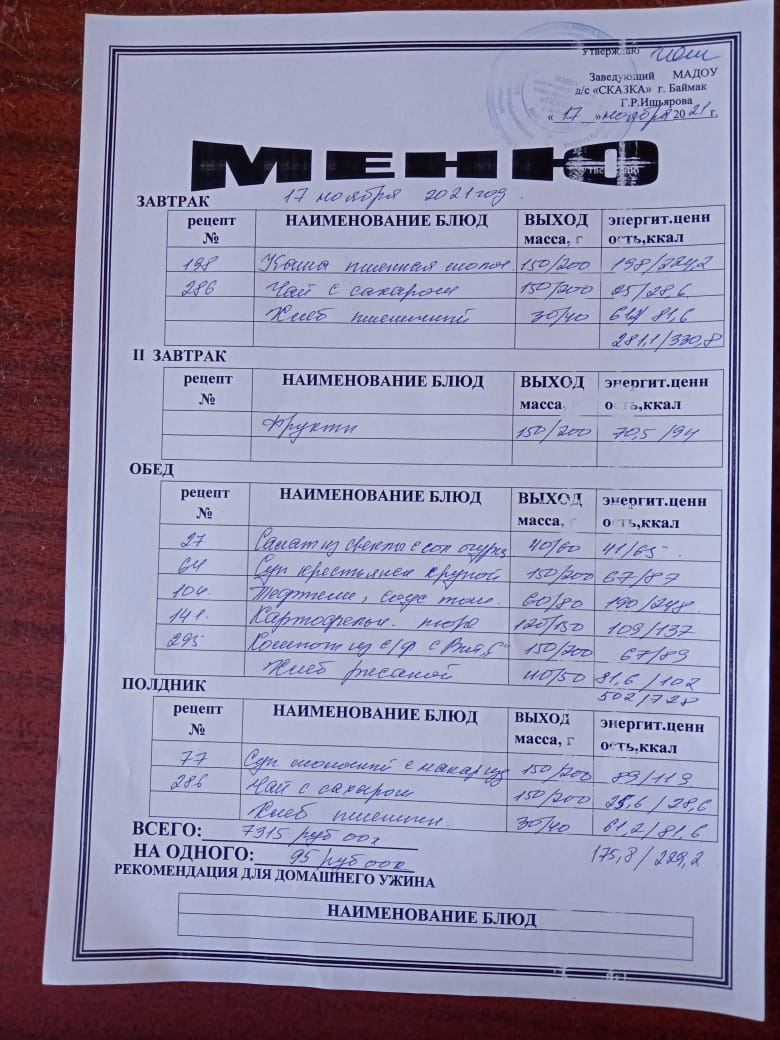 Утверждаю
Заведующий МАДОУ
д/с «СКАЗКА» г. Баймак
Г.Р.Ишьярова
« 17 » ноября 2021 г.
МЕНЮ
17 ноября 2021 год.
ЗАВТРАК
рецепт № НАИМЕНОВАНИЕ БЛЮД ВЫХОД масса, г энергит.ценн ость,ккал
198 Каша пшенная молоч. 150/200 198/224,2
286 Чай с сахаром 150/200 25/28,6
Хлеб пшеничный 30/40 61,2/81,6
281,1/330,8
II ЗАВТРАК
рецепт № НАИМЕНОВАНИЕ БЛЮД ВЫХОД масса, энергит.ценн ость,ккал
Фрукты 150/200 70,5/94
ОБЕД
рецепт № НАИМЕНОВАНИЕ БЛЮД ВЫХОД масса, г энергит.ценн ость,ккал
27 Салат из свеклы с сол огурц 40/60 41/65
64 Суп крестьянск крупой 150/200 67/87
104. Тефтели, соус том. 60/80 190/248
141. Картофельн. пюре 120/150 109/137
295. Компот из с/ф с Вит„С" 150/200 67/89
Хлеб ржаной 40/50 81,6/102
502/728
ПОЛДНИК
рецепт № НАИМЕНОВАНИЕ БЛЮД ВЫХОД масса, г энергит.ценн ость,ккал
77 Суп молочный с макар из 150/200 89/119
286 Чай с сахаром 150/200 25,6/28,6
Хлеб пшеничн. 30/40 61,2/81,6
ВСЕГО: 7315 руб 00к
175,8/229,2
НА ОДНОГО: 95 руб 00к
РЕКОМЕНДАЦИЯ ДЛЯ ДОМАШНЕГО УЖИНА
НАИМЕНОВАНИЕ БЛЮД